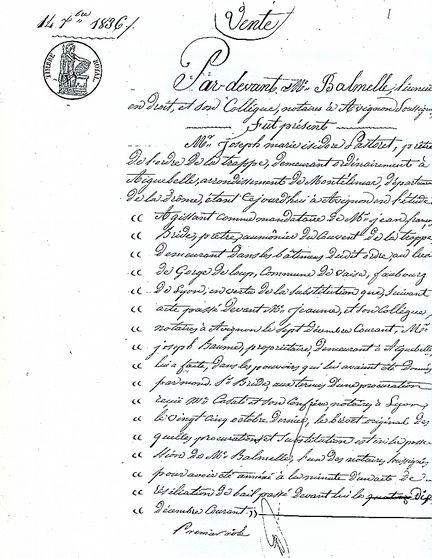 14 7bre 1836
Vente
1
TIMBRE ROYAL
Par-devant Me Balmelle, licencié
en droit, et son Collègue, notaires à Avignon soussignés
Fut présent
Mr Joseph marie isidore Pastoret, prêtre
de l'ordre de la trappe, demeurant ordinairement à
Aiguebelle, arrondissement de Montélimar, département
de la Drôme, étant aujourd'hui à Avignon
Agissant comme mandataire de Mr jean
prêtre, aumônier du Couvent de la trappe
demeurant dans les bâtimens dudit ordre, au lieu
de Gorge de loup, Commune de Vaise, faubourg
de Lyon, en vertu de la substitution que, suivant
acte passé devant Me Jeaume, et son Collègue
notaires à Avignon le sept décembre Courant, Mr
joseph Baume, propriétaire, demeurant à Aiguebelle,
lui a faite, dans les pouvoirs qui lui avaient été donnés
par mond. Sr aux termes d'une procuration
reçue Me et son Confrère, notaires à Lyon
le vingt cinq octobre dernier, les brevet original des
quelles procuration et substitution est en la posse
ssion de Me Balmelle, l'un des notaires soussignés,
pour avoir été annexé à la minute d'un acte de
résiliation de bail passé devant lui le
décembre Courant))
Premier rôle